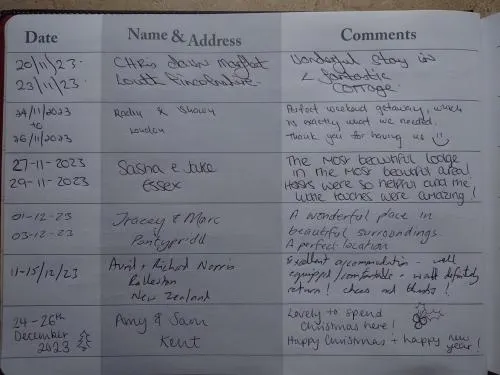 Date Name & Address Comments
20/11/23. Chris Dawn Wonderful stay in
23/11/23. Louth Lincolnshire. fantastic
cottage.
24/11/2023 & Perfect weekend getaway, which
to London is exactly what we needed.
26/11/2023 Thank you for having us
27-11-2023 Sasha & Jake The most beautiful lodge
29-11-2023 Essex in the most beautiful area!
Hosts were so helpful and the
little touches were amazing!
01-12-23 Tracey & Marc A wonderful place in
03-12-23 Pontypridd beautiful surroundings
A perfect location
11-15/12/23 Avril + Richard Norris Excellent accommodation - well
Rolleston equipped/comfortable - would definitely
New Zealand return! cheers and thanks!
24-26th Amy & Sam Lovely to spend
December Kent Christmas here!
2023 Happy Christmas + happy new
year!